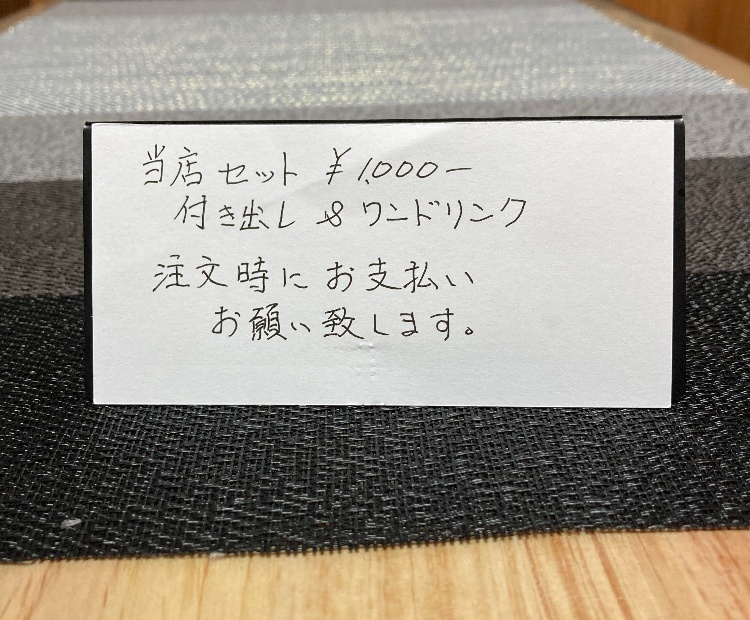 当店セット ¥1,000ー
付き出し & ワンドリンク
注文時にお支払い
お願い致します。